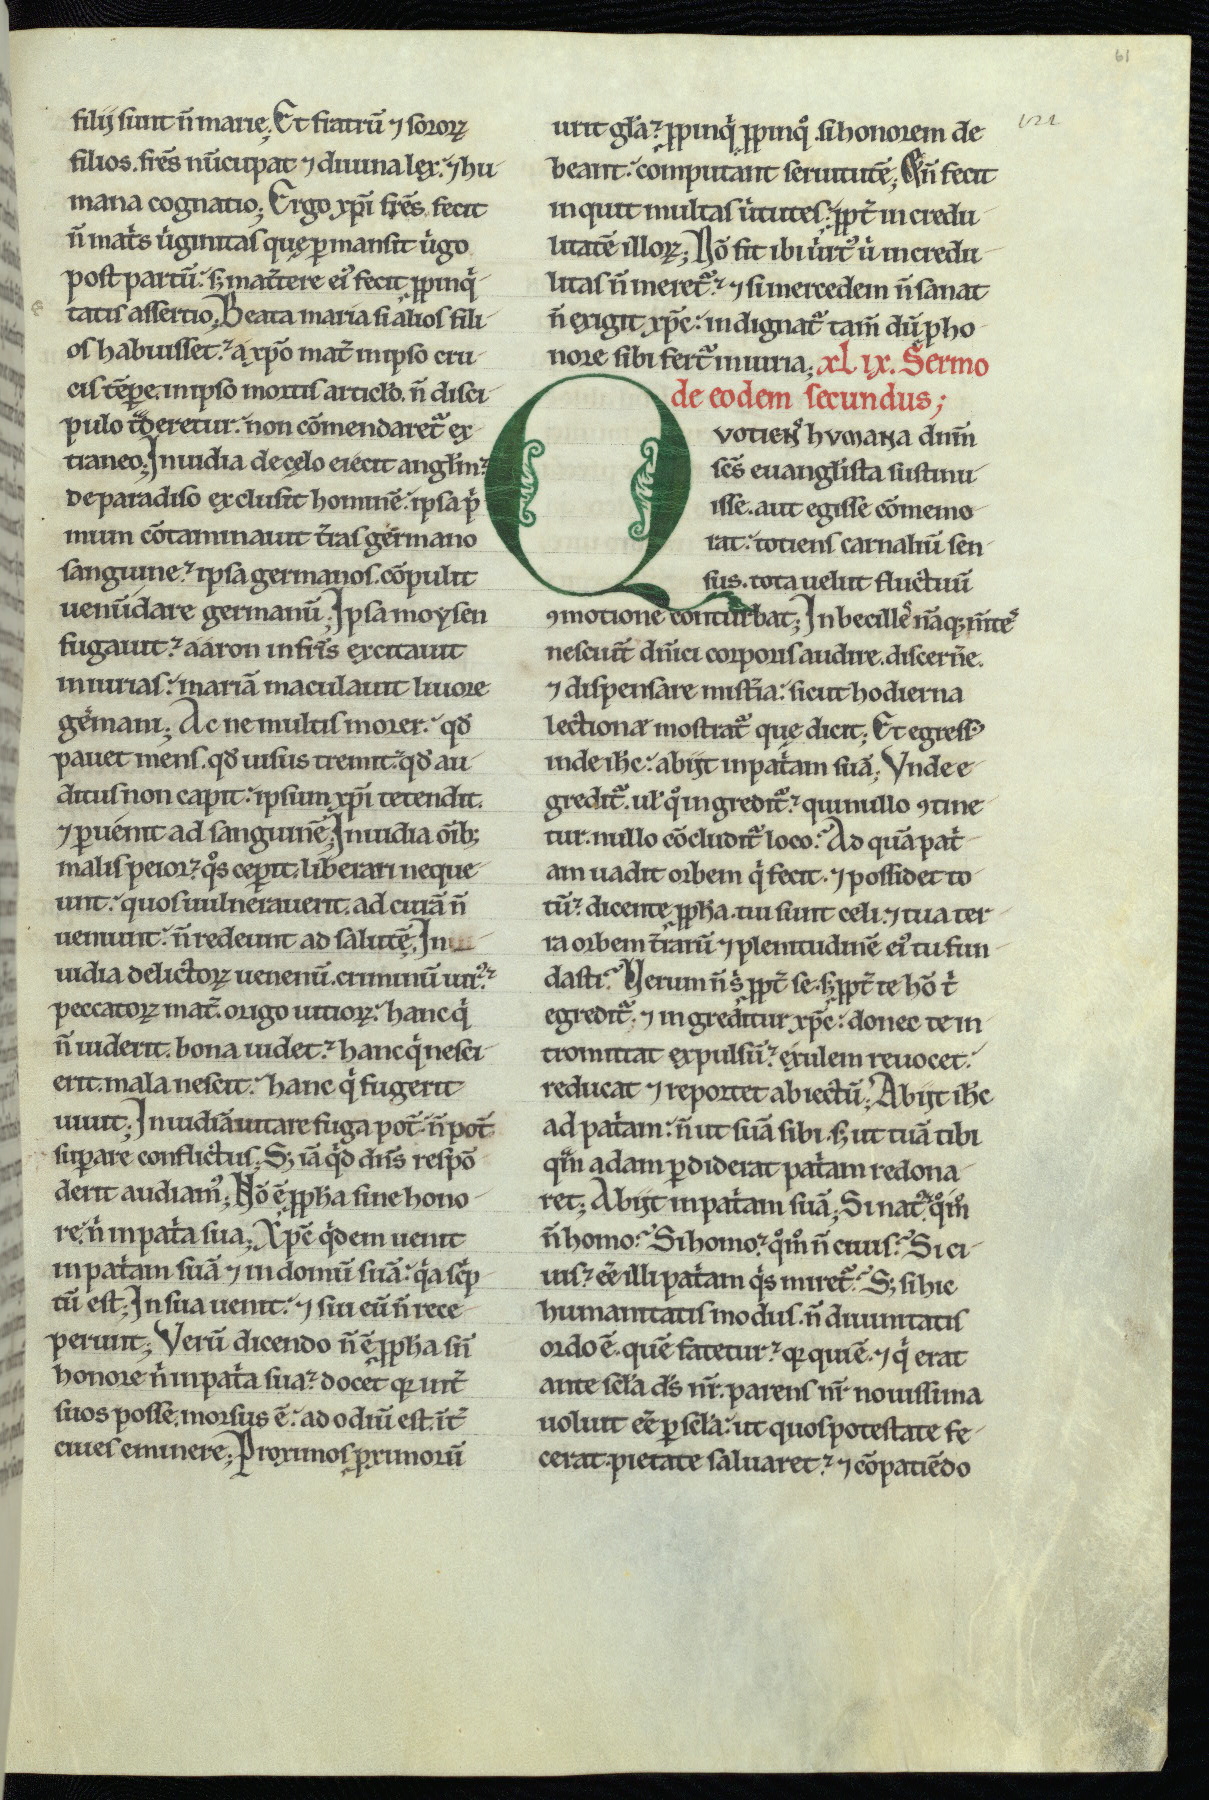 61
filij sunt n̄ marie; Et fratrū ⁊ sororꝝ
filios. frēs nūcupat ⁊ diuina lex.ʼ ⁊ hu-
mana cognatio; Ergo xp̄i frēs fecit
n̄ mat̄s ũginitas quę ꝑmansit ũgo
post partū.ʼ sꝫ mat̄tere eiꝰ fecit ꝓpinqⁱ
tatis assertio; Beata maria si alios fili-
os habuisset.ʼ a xp̄o mat̄ in ipso cru-
cis tēꝑe. in ipso mortis articlo. n̄ disci-
pulo tᵃderetur.ʼ non cōmendaret᷑ ex-
traneo; Inuidia de cęlo eiecit anglm̄.ʼ
de paradiso exclusit hominē.ʼ ipsa pⁱ
mum cōtaminauit t̄ras germano
sanguine.ʼ ipsa germanos. cōpulit
uenūdare germanū; Ipsa moysen
fugauit.ʼ aaron in fr̄is excitauit
iniurias.ʼ mariā maculauit liuore
gẽmani; Ac ne multis morer.ʼ qđ
pauet mens. qđ uisus tremit.ʼ qđ au-
ditus non capit.ʼ ipsum xp̄i tetendit.
⁊ ꝑuenit ad sanguinē; Inuidia oīb;
malis peior.ʼ qͦs ceꝑit. liberari neque-
unt.ʼ quos uulnerauerit. ad curā n̄
ueniunt.ʼ n̄ redeunt ad salutē; In-
uidia delictorꝝ uenenū. criminū uirꝰ.ʼ
peccatorꝝ mat̄. origo uitiorꝝ.ʼ hanc qⁱ
n̄ uiderit. bona uidet.ʼ hanc qⁱ nesci-
erit. mala nescit.ʼ hanc qⁱ fugerit
uiuit; Inuidiā uitare fuga pot̄.ʼ n̄ pot̄
suꝑare conflictus; Sꝫ iā qⁱd dn̄s respō-
derit audiamꝰ; Nō ē ꝓpħa sine hono-
re. nⁱ in patⁱa sua; Xp̄c qⁱdem uenit
in patⁱam suā ⁊ in domū suā.ʼ qⁱa sc̄p-
tū est; In sua uenit.ʼ ⁊ sui eū n̄ rece-
perunt; Verū dicendo n̄ ē ꝓpħa sn̄
honore nⁱ in patⁱa sua.ʼ docet qꝛ int̄
suos posse. morsus ē.ʼ ad odiū est. int̄
ciues eminere; Proximos ꝓximorū
urit gl̄a.ʼ ꝓpinqⁱ ꝓpinqͦ. si honorem de-
beant.ʼ computant seruitutē; Et n̄ fecit
inquit multas ũtutes.ʼ ꝓpt̄ incredu-
litatē illorꝝ; Nō fit ibi ũtꝰ ũ incredu-
litas n̄ meret᷑.ʼ ⁊ si mercedem n̄ sanat
n̄ exigit xp̄c.ʼ indignat᷑ tam̄ dū ꝓ ho-
nore sibi fert᷑ iniuria; xl ix. Sermo
de eodem secundus;
Quotiens humana dnm̄
sc̄s euanglista sustinu-
isse. aut egisse cōmemo-
rat.ʼ totiens carnaliū sen-
sus. tota uelut fluctuū
ꝯmotione conturbat; Inbecilles nāq; m̄tes
nesciūt dn̄ici corporis audire. discern̄e.
⁊ dispensare mist̄ia.ʼ sicut hodierna
lectionæ mostrat᷑ quę dicit; Et egressꝰ
inde iħc.ʼ abijt in patⁱam suā; Vnde e-
gredit᷑. ul̄ qͦ ingredit᷑.ʼ qui nullo ꝯtine-
tur. nullo cōcludit᷑ loco.ʼ Ad quā patⁱ-
am uadit orbem qⁱ fecit. ⁊ possidet to-
tū.ʼ dicente ꝓpħa. tui sunt celi. ⁊ tua ter-
ra orbem t̄rarū ⁊ plenitudinē eiꝰ tu fun-
dasti.ʼ Verum n̄ sⁱ ꝓpt̄ se. sꝫ ꝓpt̄ te hō tⁱ
egredit᷑. ⁊ ingreditur xp̄c.ʼ donec te in-
tromittat expulsū.ʼ exulem reuocet.ʼ
reducat ⁊ reportet abiectū; Abijt iħc
ad patⁱam.ʼ n̄ ut suā sibi. sꝫ ut tuā tibi
qͣm adam ꝑdiderat patⁱam redona-
ret; Abijt in patⁱam suā; Si natꝰ.ʼ qͦm̊
n̄ homo.ʼ Si homo.ʼ qͦm̊ n̄ ciuis.ʼ Si ci-
uis.ʼ eē illi patⁱam qⁱs miret᷑.ʼ Sꝫ si hic
humanitatis modus. n̄ diuinitatis
ordo ē. quē fatetur.ʼ qꝛ qui ē. ⁊ qⁱ erat
ante scl̄a ds̄ nr̄. parens nr̄ nouissima
uoluit eē ꝑ scl̄a.ʼ ut quos potestate fe-
cerat. pietate saluaret.ʼ ⁊ cōpatiēdo